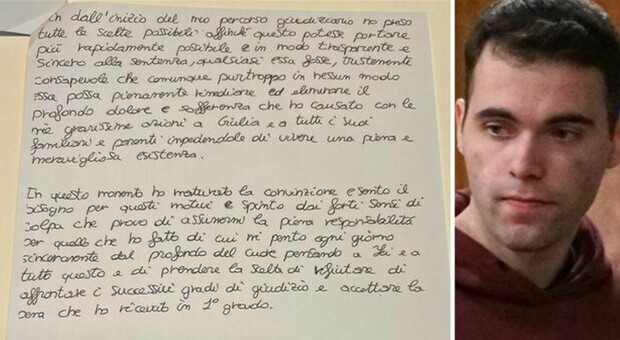 In dall'inizio del mio percorso giudiziario ho preso
tutte le scelte possibili affinché questo potesse portare
più rapidamente possibile e in modo trasparente e
sincero alla sentenza, qualsiasi essa fosse, tristemente
consapevole che comunque purtroppo in nessun modo
essa possa pienamente rimediare ed eliminare il
profondo dolore e sofferenza che ho causato con le
mie gravissime azioni a Giulia e a tutti i suoi
familiari e parenti impedendole di vivere una piena e
meravigliosa esistenza.
In questo momento ho maturato la convinzione e sento il
bisogno per questi motivi e spinto dai forti sensi di
colpa che provo di assumermi la piena responsabilità
per quello che ho fatto di cui mi pento ogni giorno
sinceramente dal profondo del cuore pensando a lei e a
tutto questo e di prendere la scelta di rifiutare di
affrontare i successivi gradi di giudizio e accettare la
pena che ho ricevuto in 1° grado.